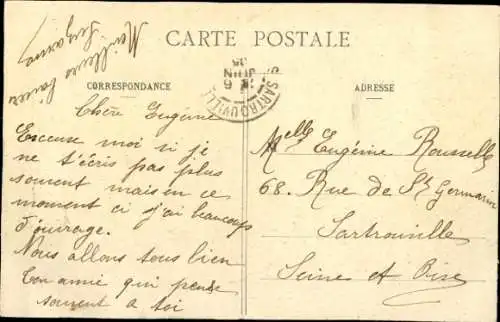 CARTE POSTALE
CORRESPONDANCE
ADRESSE
Meilleurs baisers
Suzanne
SARTROUVILLE
JUIN
Chère Eugénie
Excuse moi si je
ne t'écris pas plus
souvent mais en ce
moment ci j'ai beaucoup
d'ouvrage.
Nous allons tous bien
Ton amie qui pense
souvent a toi
Melle Eugénie Roussel
68. Rue de St Germain
Sartrouville
Seine et Oise